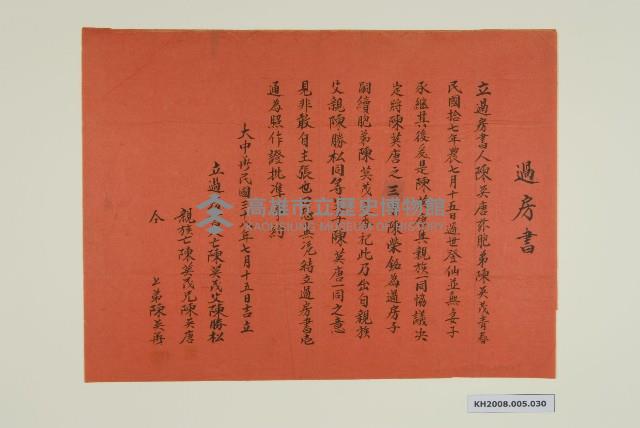 過房書
立過房書人陳英唐于胞弟陳英茂青春
民國拾七年農七月十五日過世登仙並無妻子
承繼其後爰是陳英唐與親族一同協議決
定將陳英唐之三 陳榮銘為過房子
嗣續胞弟陳英茂 奉祀此乃出自親族
父親陳勝松同等 子陳英唐一同之意
見非敢自主張也 恐無憑籍立過房書壱
通為照作證批准 約
大中華民國三 年七月十五日吉立
立過 亡陳英茂父陳勝松
親族亡陳英茂兄陳英唐
仝 上弟陳英再
高雄市立歷史博物館
KAOHSIUNG MUSEUM OF HISTORY
KH2008.005.030